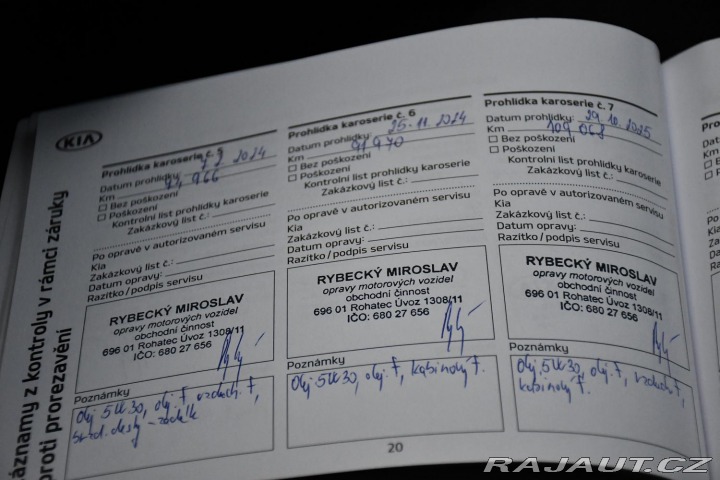 KIA
áznamy z kontroly v rámci záruky
proti prorezavění
Prohlídka karoserie č. 5
Datum prohlídky: 2024
Km 966
Bez poškození
Poškození
Kontrolní list prohlídky karoserie
Zakázkový list č.:
Po opravě v autorizovaném servisu
Kia
Zakázkový list č.:
Datum opravy:
Razítko / podpis servisu
RYBECKÝ MIROSLAV
opravy motorových vozidel
obchodní činnost
696 01 Rohatec Úvoz 1308/11
IČO: 680 27 656
Poznámky
Olej 5W30, olej. f, vzduch. f,
Prohlídka karoserie č. 6
Datum prohlídky: 25.11.2024
Km 97 970
Bez poškození
Poškození
Kontrolní list prohlídky karoserie
Zakázkový list č.:
Po opravě v autorizovaném servisu
Kia
Zakázkový list č.:
Datum opravy:
Razítko / podpis servisu
RYBECKÝ MIROSLAV
opravy motorových vozidel
obchodní činnost
696 01 Rohatec Úvoz 1308/11
IČO: 680 27 656
Poznámky
Olej 5W30, olej. f, kabinový f.
Prohlídka karoserie č. 7
Datum prohlídky: 29.10.2025
Km 109 068
Bez poškození
Poškození
Kontrolní list prohlídky karoserie
Zakázkový list č.:
Po opravě v autorizovaném servisu
Kia
Zakázkový list č.:
Datum opravy:
Razítko / podpis servisu
RYBECKÝ MIROSLAV
opravy motorových vozidel
obchodní činnost
696 01 Rohatec Úvoz 1308/11
IČO: 680 27 656
Poznámky
Olej 5W30, olej. f, vzduch. f,
kabinový f.
20
RAJAUT.CZ